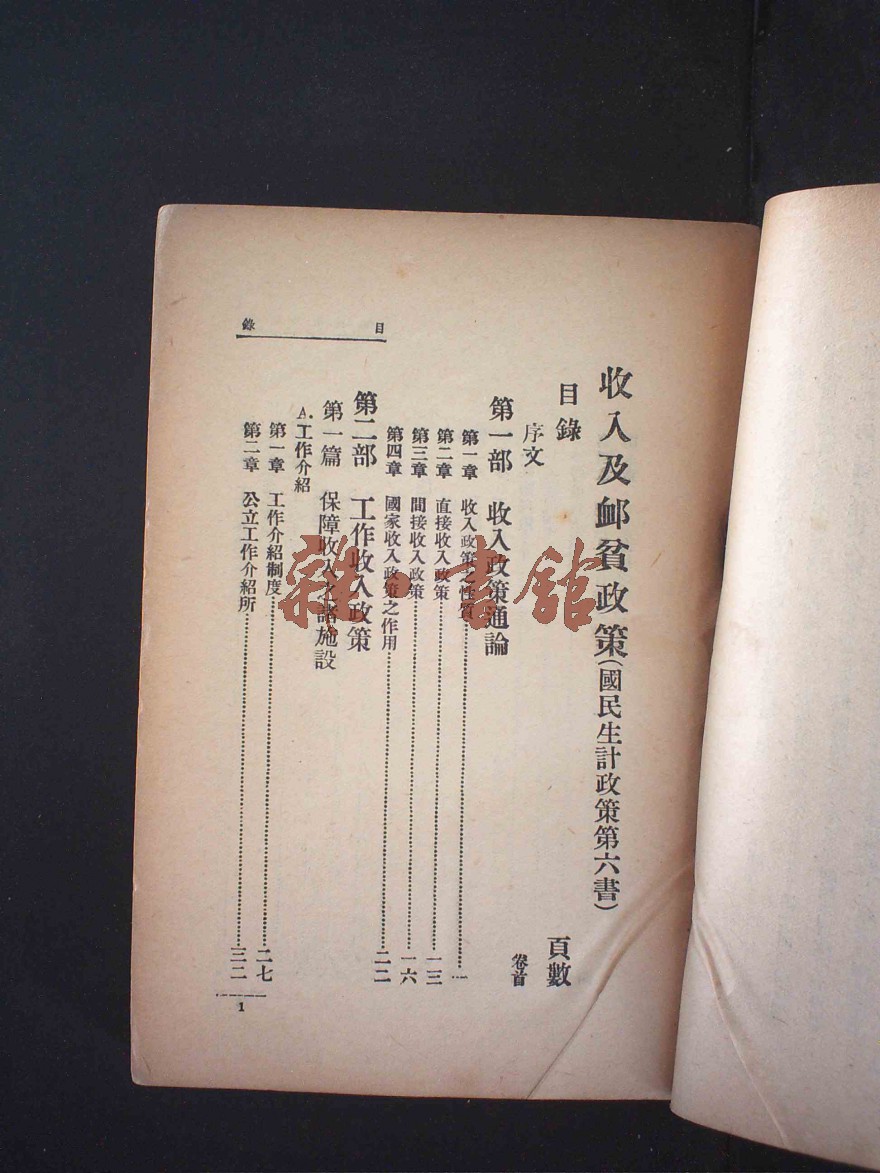 收入及卹貧政策(國民生計政策第六書)
目錄 頁數
序文 卷首
第一部 收入政策通論
第一章 收入政策之性質 一
第二章 直接收入政策 一三
第三章 間接收入政策 一六
第四章 國家收入政策之作用 二二
第二部 工作收入政策
第一篇 保障收入之諸施設
A.工作介紹
第一章 工作介紹制度 二七
第二章 公立工作介紹所 三二
目錄
1
雜書館